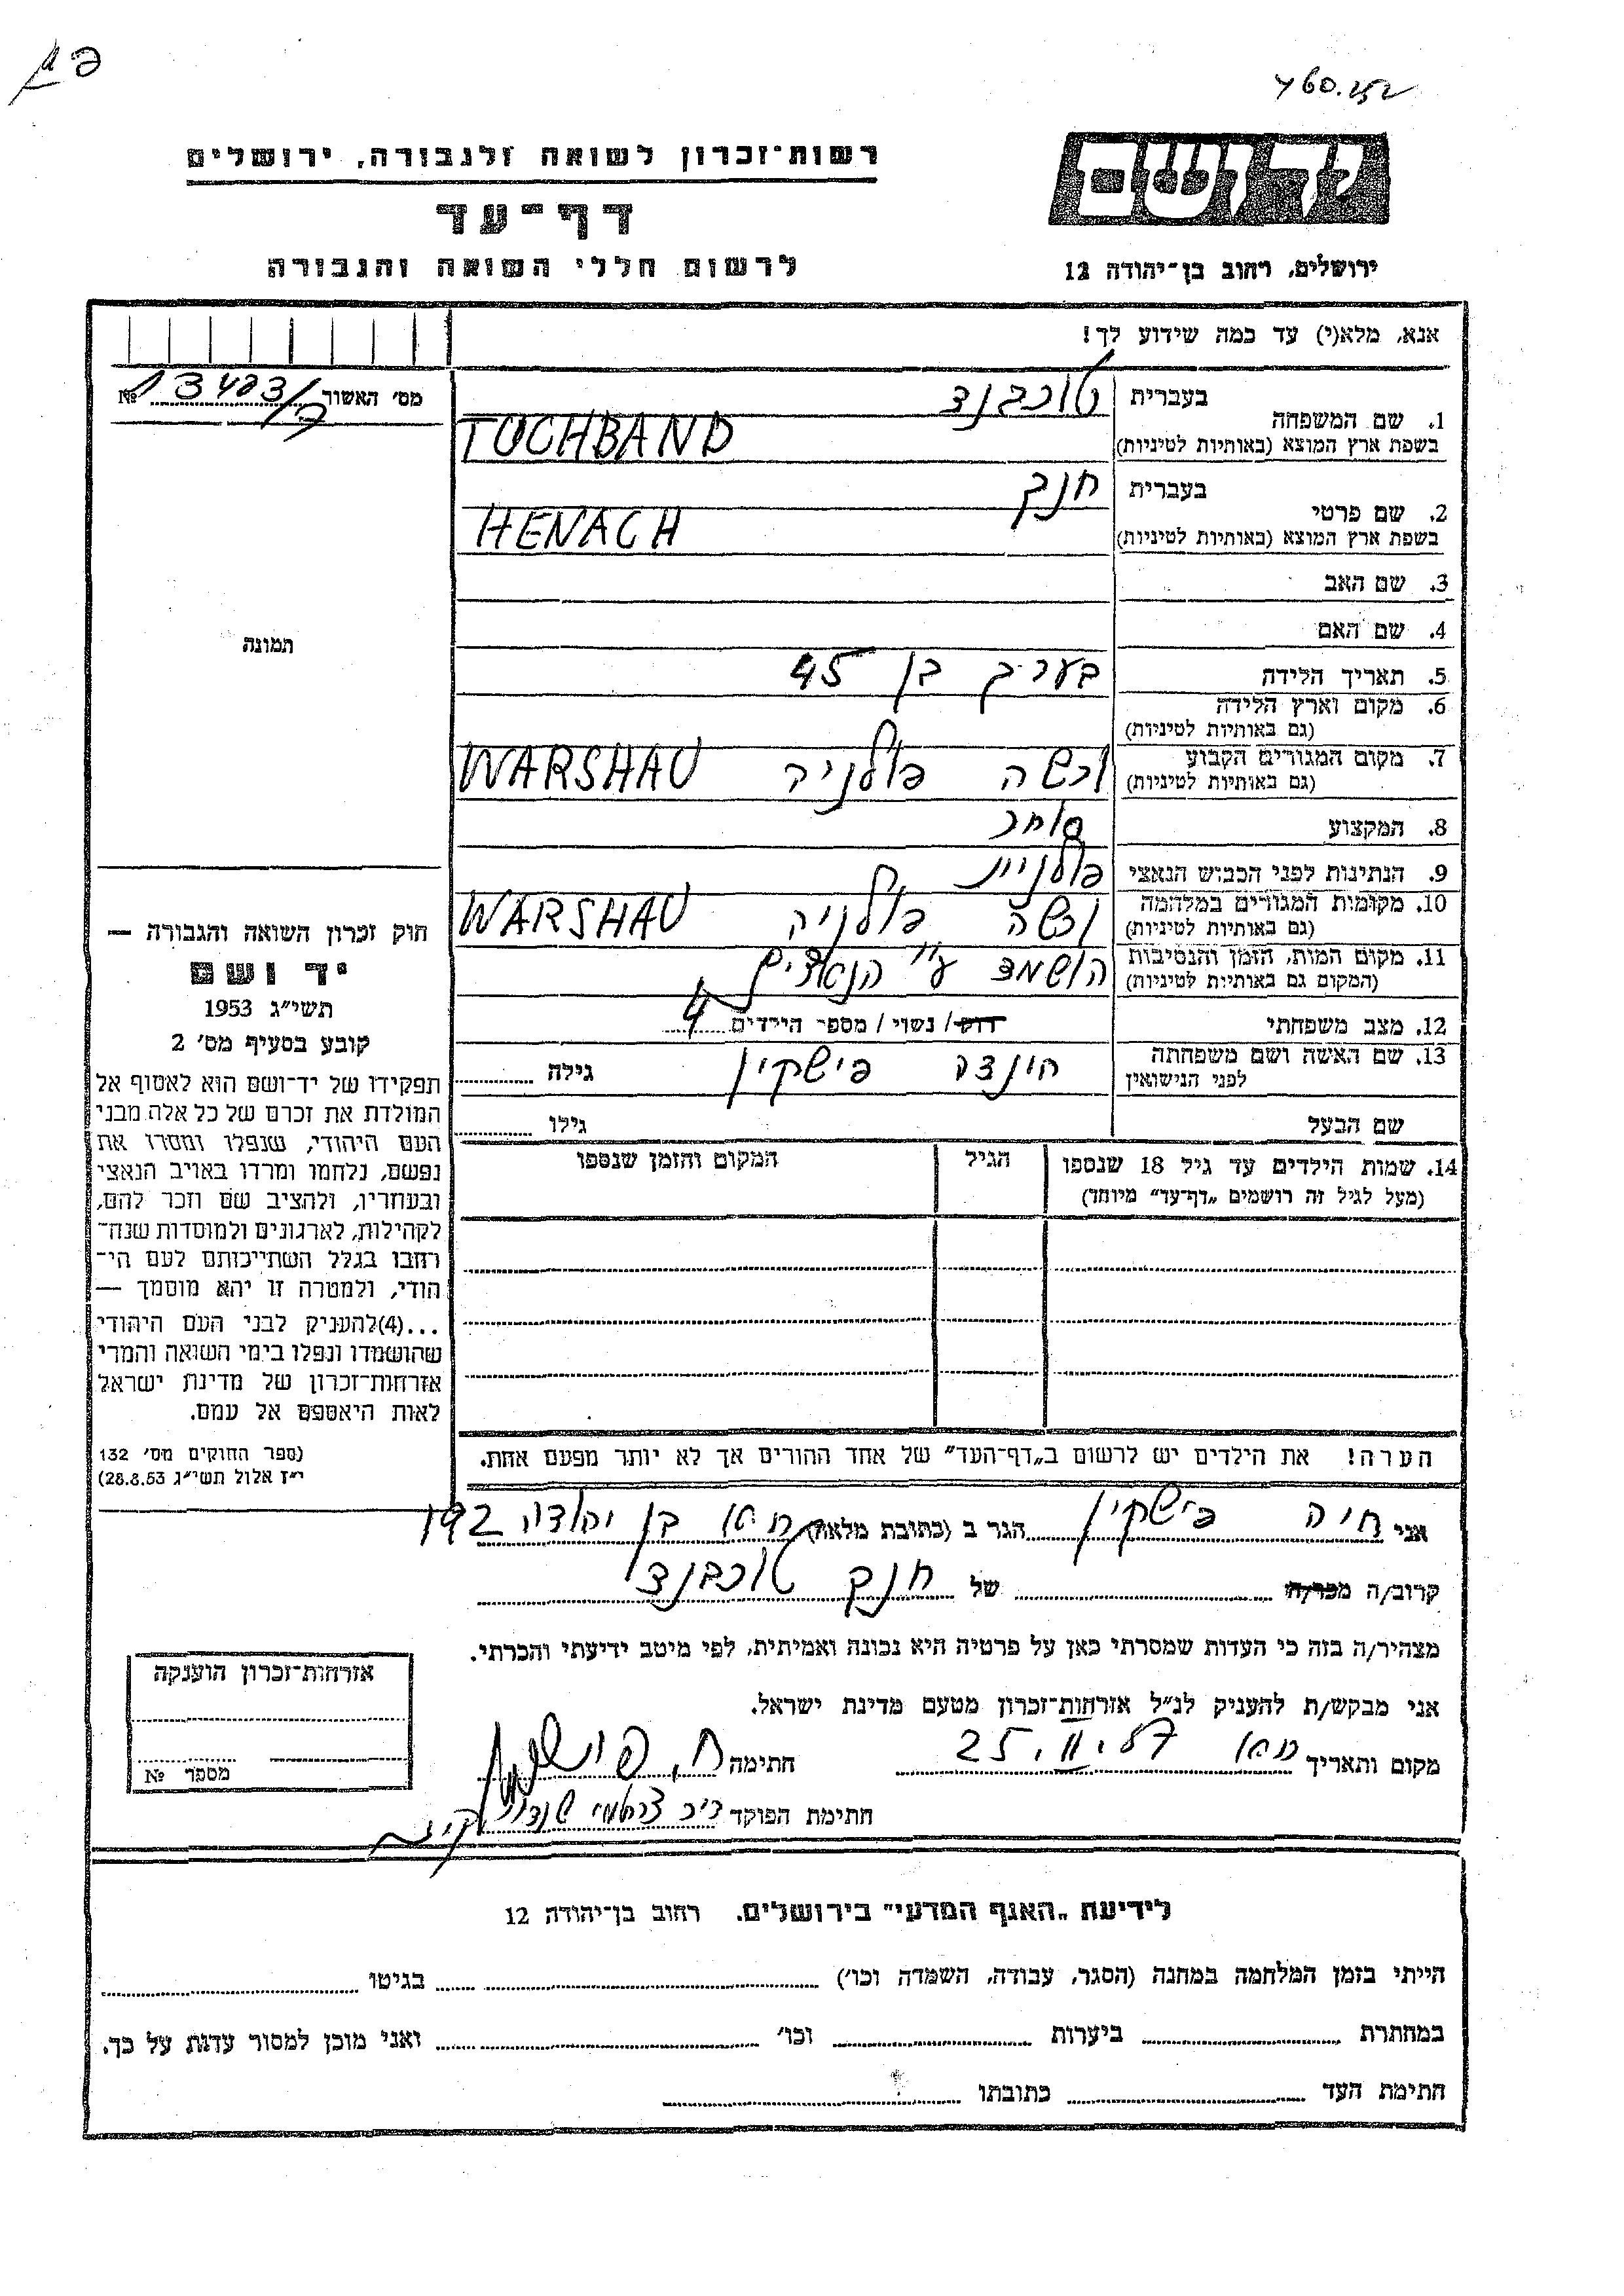 רשות־זכרון לשואה ולגבורה, ירושלים
דף־עד
לרשום חללי השואה והגבורה
יד ושם
ירושלים, רחוב בן־יהודה 12
אנא, מלא(י) עד כמה שידוע לך!
מס' האשור №
1. שם המשפחה בעברית טוכבנד
בשפת ארץ המוצא (באותיות לטיניות) TUCHBAND
2. שם פרטי בעברית חנך
בשפת ארץ המוצא (באותיות לטיניות) HENACH
3. שם האב
4. שם האם
5. תאריך הלידה בערך בן 45
6. מקום וארץ הלידה
(גם באותיות לטיניות)
7. מקום המגורים הקבוע ורשה פולניה WARSHAU
(גם באותיות לטיניות)
8. המקצוע סוחר
9. הנתינות לפני הכבוש הנאצי פולנית
10. מקומות המגורים במלחמה ורשה פולניה WARSHAU
(גם באותיות לטיניות)
11. מקום המות, הזמן והנסיבות הושמד ע"י הנאצים
(המקום גם באותיות לטיניות)
12. מצב משפחתי רוק/ נשוי / מספר הילדים 4
13. שם האשה ושם משפחתה הינדה פישקין גילה
לפני הנישואין
שם הבעל גילו
14. שמות הילדים עד גיל 18 שנספו הגיל המקום והזמן שנספו
(מעל לגיל זה רושמים „דף־עד” מיוחד)
הערה! את הילדים יש לרשום ב„דף־העד” של אחד ההורים אך לא יותר מפעם אחת.
תמונה
חוק זכרון השואה והגבורה —
יד ושם
תשי"ג 1953
קובע בסעיף מס' 2
תפקידו של יד־ושם הוא לאסוף אל
המולדת את זכרם של כל אלה מבני
העם היהודי, שנפלו ומסרו את
נפשם, נלחמו ומרדו באויב הנאצי
ובעוזריו, ולהציב שם וזכר להם,
לקהילות, לארגונים ולמוסדות שנח־
רחבו בגלל השתייכותם לעם הי־
הודי, ולמטרה זו יהא מוסמך —
...(4)להעניק לבני העם היהודי
שהושמדו ונפלו בימי השואה והמרי
אזרחות־זכרון של מדינת ישראל
לאות היאספם אל עמם.
(ספר החוקים מס' 132
י"ז אלול תשי"ג 28.8.53)
אני חיה פישקין הגר ב (כתובת מלאה) בן יהודה 192
קרוב/ה מכר/ה של חנך טוכבנד
מצהיר/ה בזה כי העדות שמסרתי כאן על פרטיה היא נכונה ואמיתית, לפי מיטב ידיעתי והכרתי.
אני מבקש/ת להעניק לנ"ל אזרחות־זכרון מטעם מדינת ישראל.
מקום ותאריך 25.II.57 חתימה
חתימת הפוקד
אזרחות־זכרון הוענקה
מספר №
לידיעת „האגף המדעי” בירושלים. רחוב בן־יהודה 12
הייתי בזמן המלחמה במחנה (הסגר, עבודה, השמדה וכו') בגיטו
במחתרת ביערות וכו' ואני מוכן למסור עדות על כך.
חתימת העד כתובתו